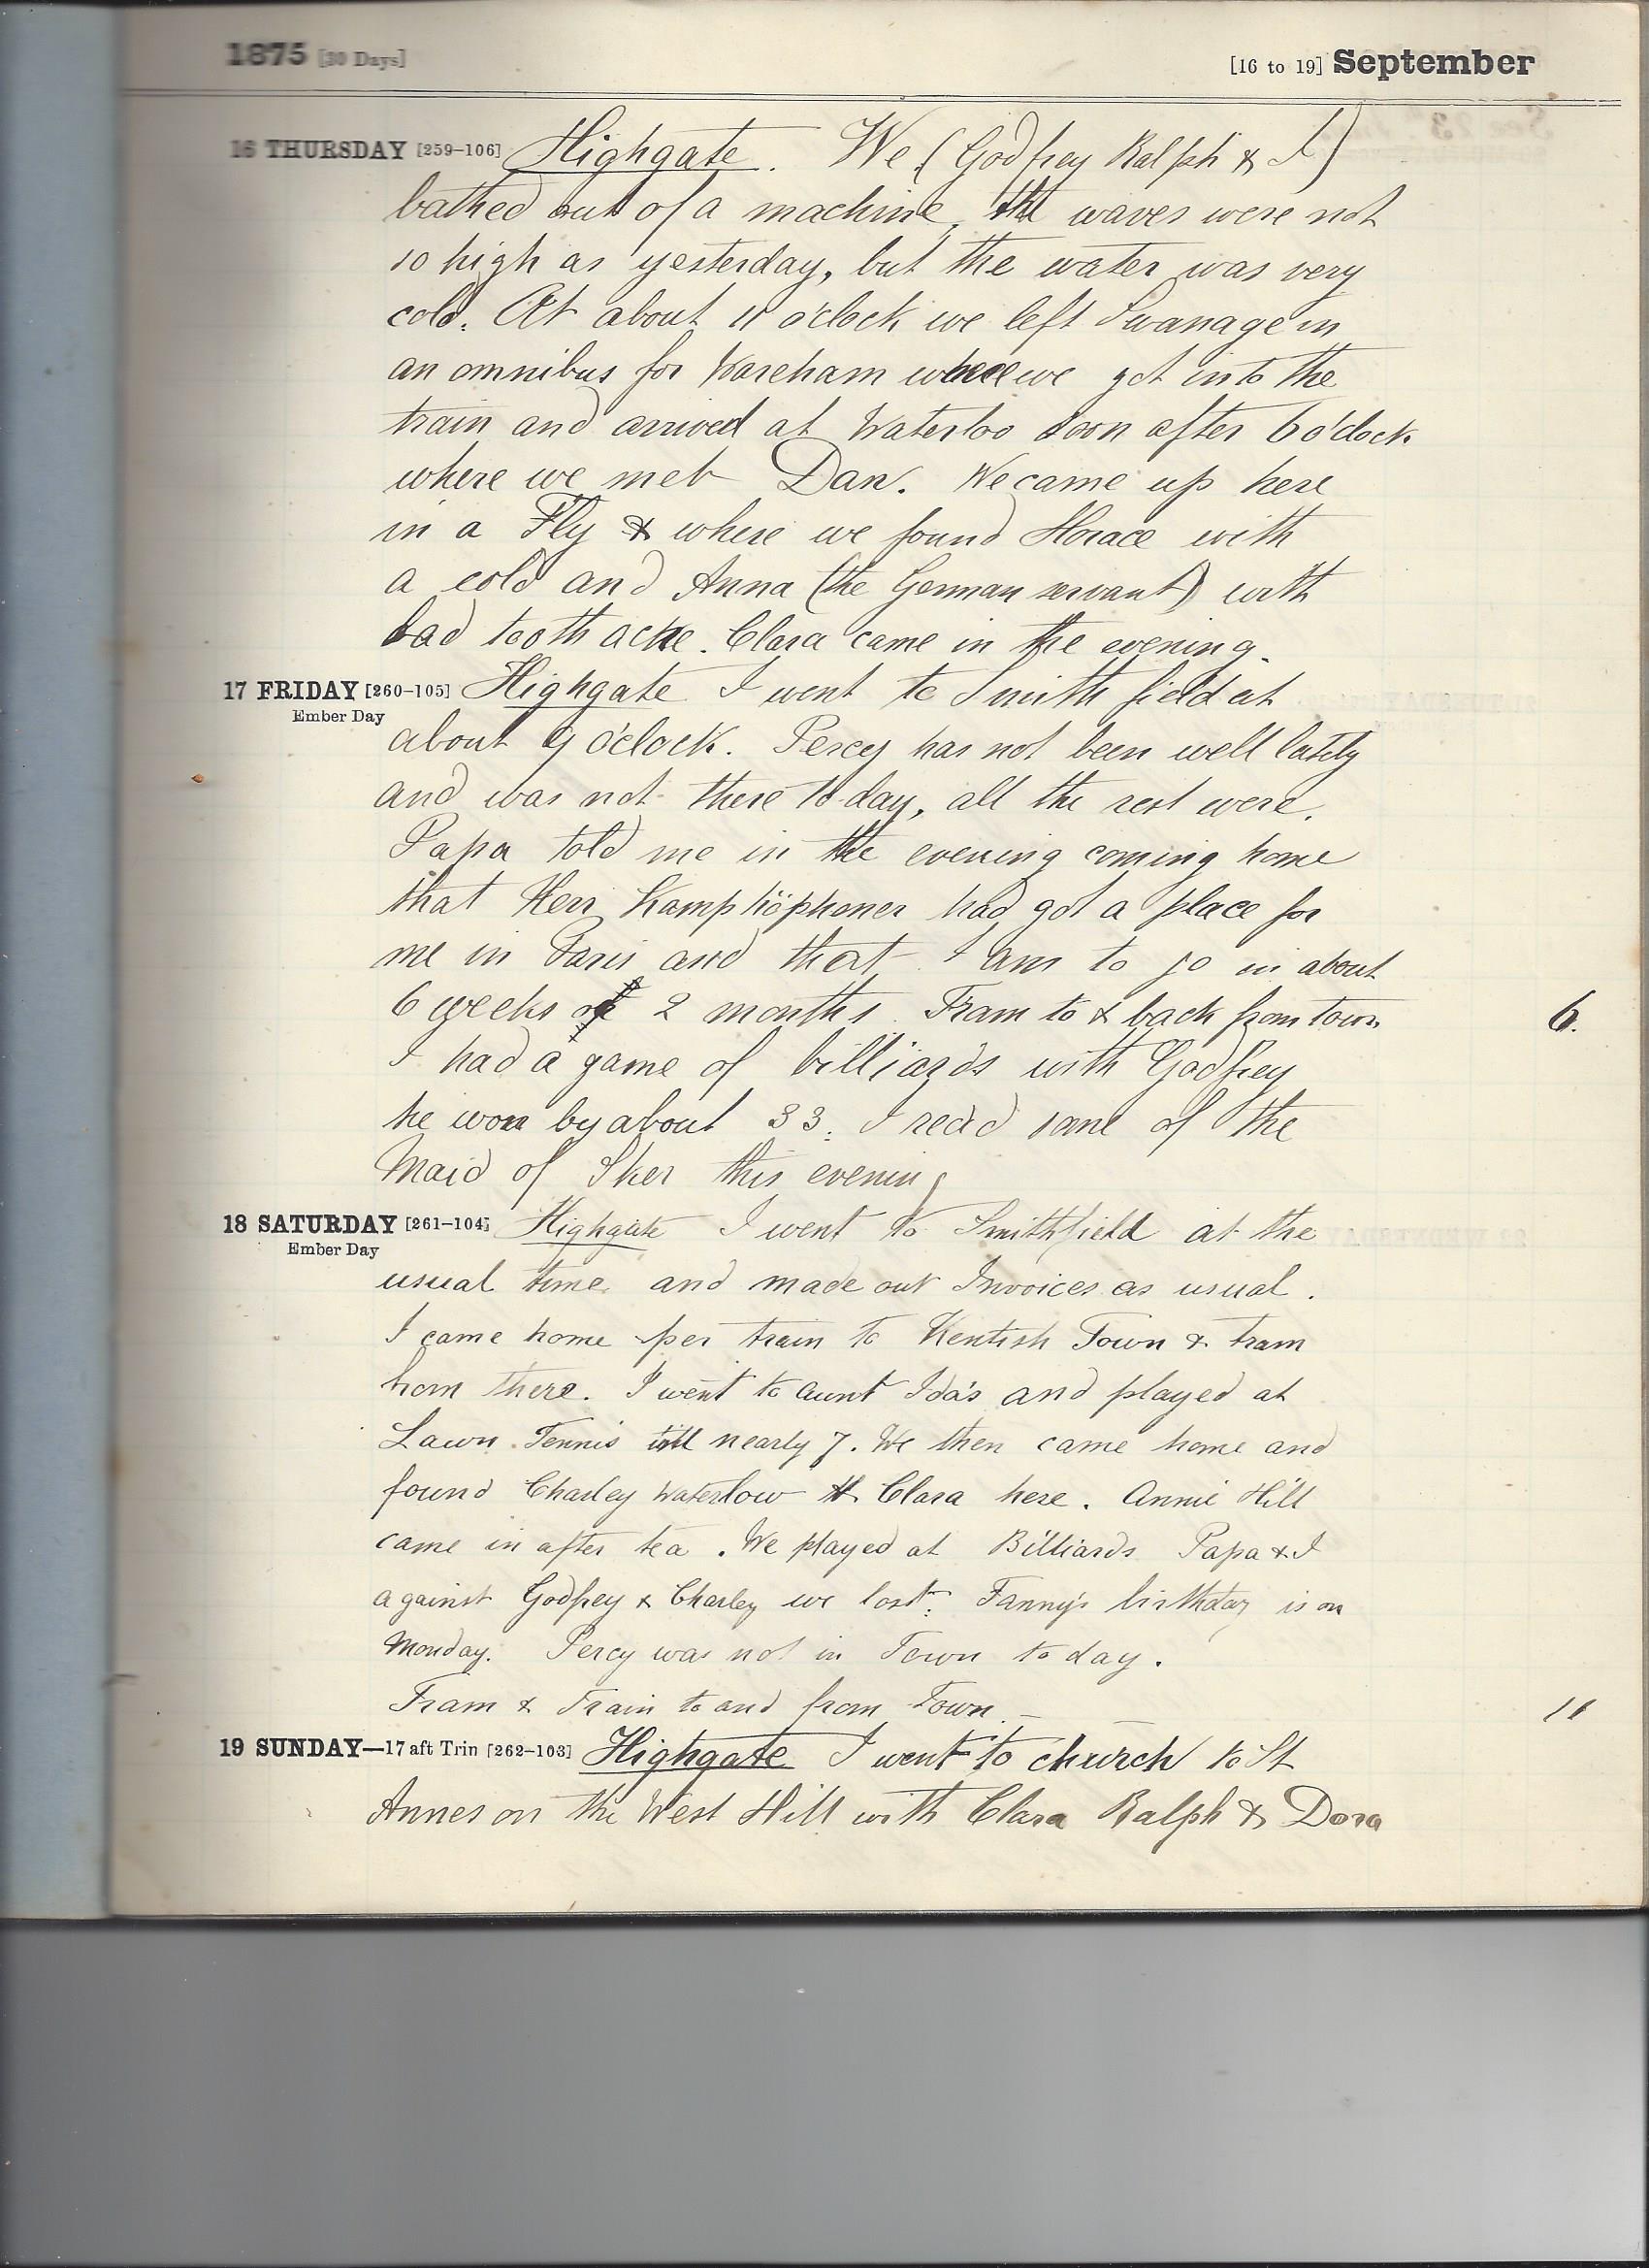 1875 [30 Days] [16 to 19] September
16 THURSDAY [259-106] Highgate. We (Godfrey Ralph & I)
bathed out of a machine, the waves were not
so high as yesterday, but the water was very
cold. At about 11 o'clock we left Swanage in
an omnibus for Wareham where we got into the
train and arrived at Waterloo soon after 6 o'clock
where we met Dan. We came up here
in a Fly & where we found Horace with
a cold and Anna (the German servant) with
bad tooth ache. Clara came in the evening.
17 FRIDAY [260-105] Highgate I went to Smith field at
Ember Day
about 9 o'clock. Percy has not been well lately
and was not there to-day, all the rest were.
Papa told me in the evening coming home
that Herr had got a place for
me in Paris and that I am to go in about
6 weeks or 2 months. Tram to & back from town 6.
I had a game of billiards with Godfrey
he won by about 33. I read some of the
Maid of Sker this evening
18 SATURDAY [261-104] Highgate I went to Smithfield at the
Ember Day
usual time and made out Invoices as usual.
I came home per train to Kentish Town & tram
from there. I went to Aunt Ida's and played at
Lawn Tennis till nearly 7. We then came home and
found Charley Waterlow & Clara here. Annie Hill
came in after tea. We played at Billiards Papa & I
against Godfrey & Charley we lost. Fanny's birthday is on
Monday. Percy was not in Town to day.
Tram & Train to and from Town. 11
19 SUNDAY—17 aft Trin [262-103] Highgate I went to church to St
Annes on the West Hill with Clara Ralph & Dora